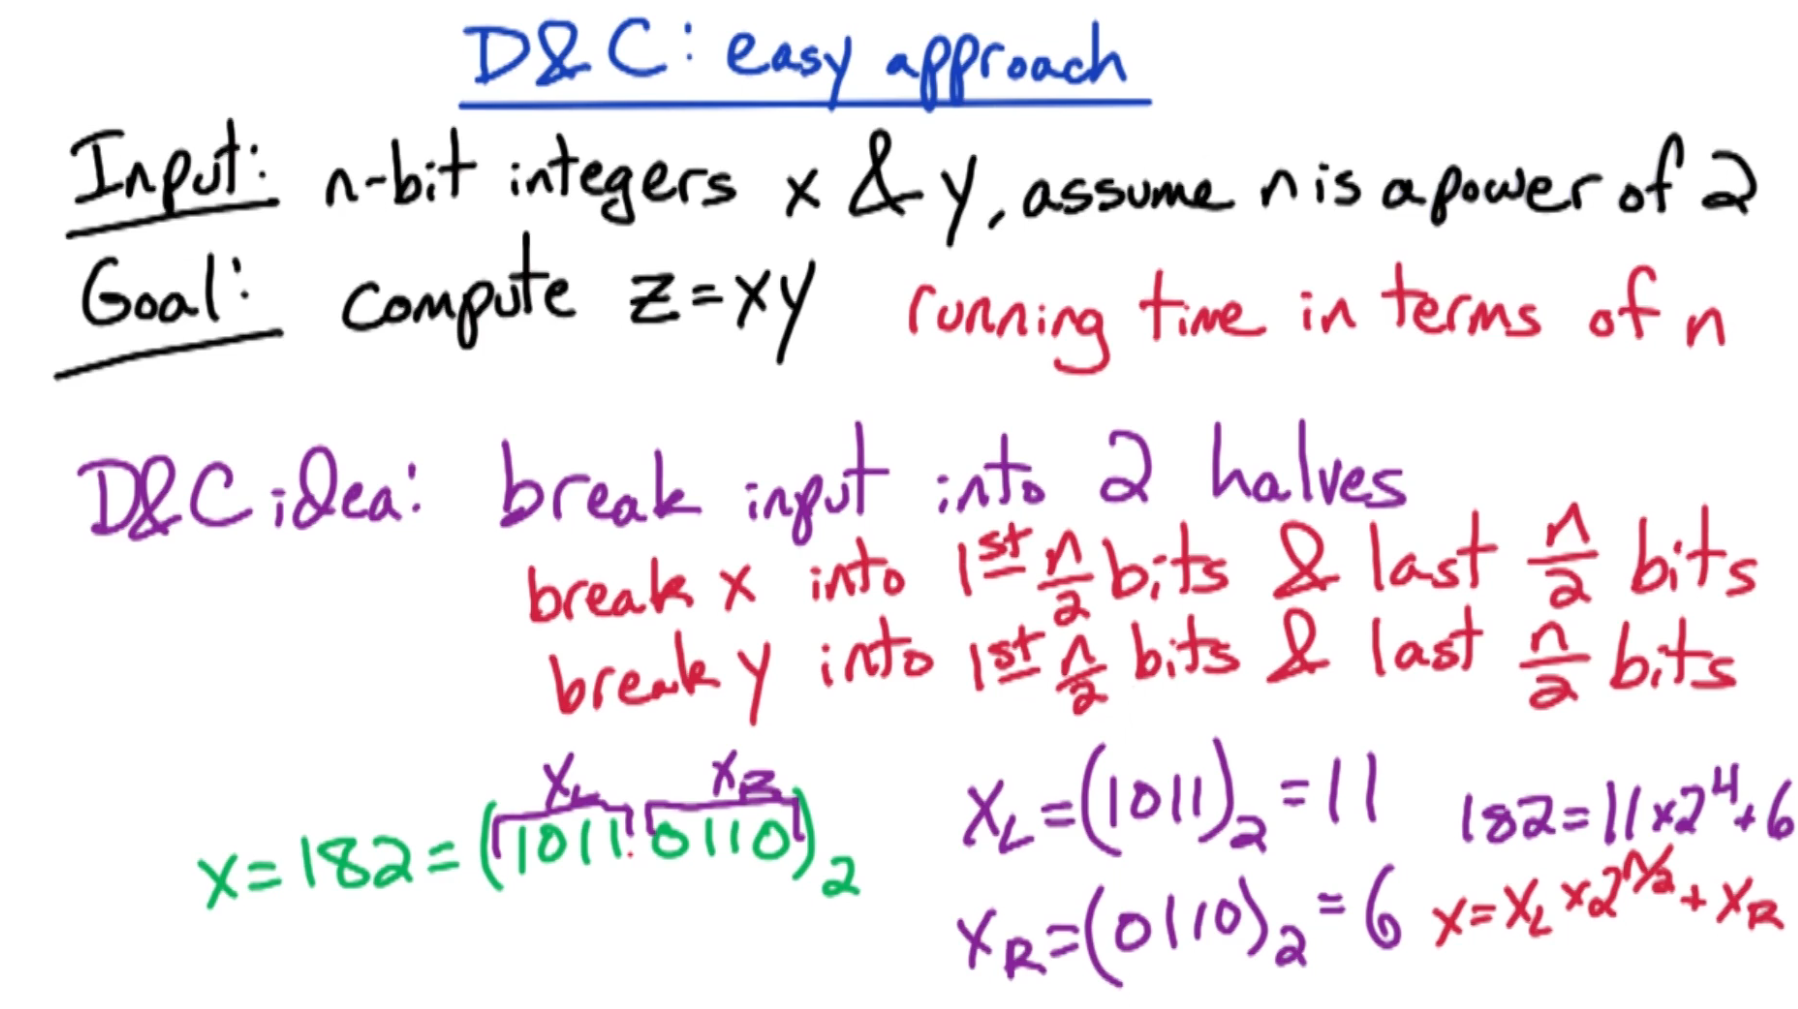 D&C: easy approach
Input: n-bit integers x & y, assume n is a power of 2
Goal: compute z = xy running time in terms of n
D&C idea: break input into 2 halves
break x into 1st n/2 bits & last n/2 bits
break y into 1st n/2 bits & last n/2 bits
x_L x_R
x = 182 = (1011 0110)_2
x_L = (1011)_2 = 11
x_R = (0110)_2 = 6
182 = 11 × 2^4 + 6
x = x_L × 2^(n/2) + x_R